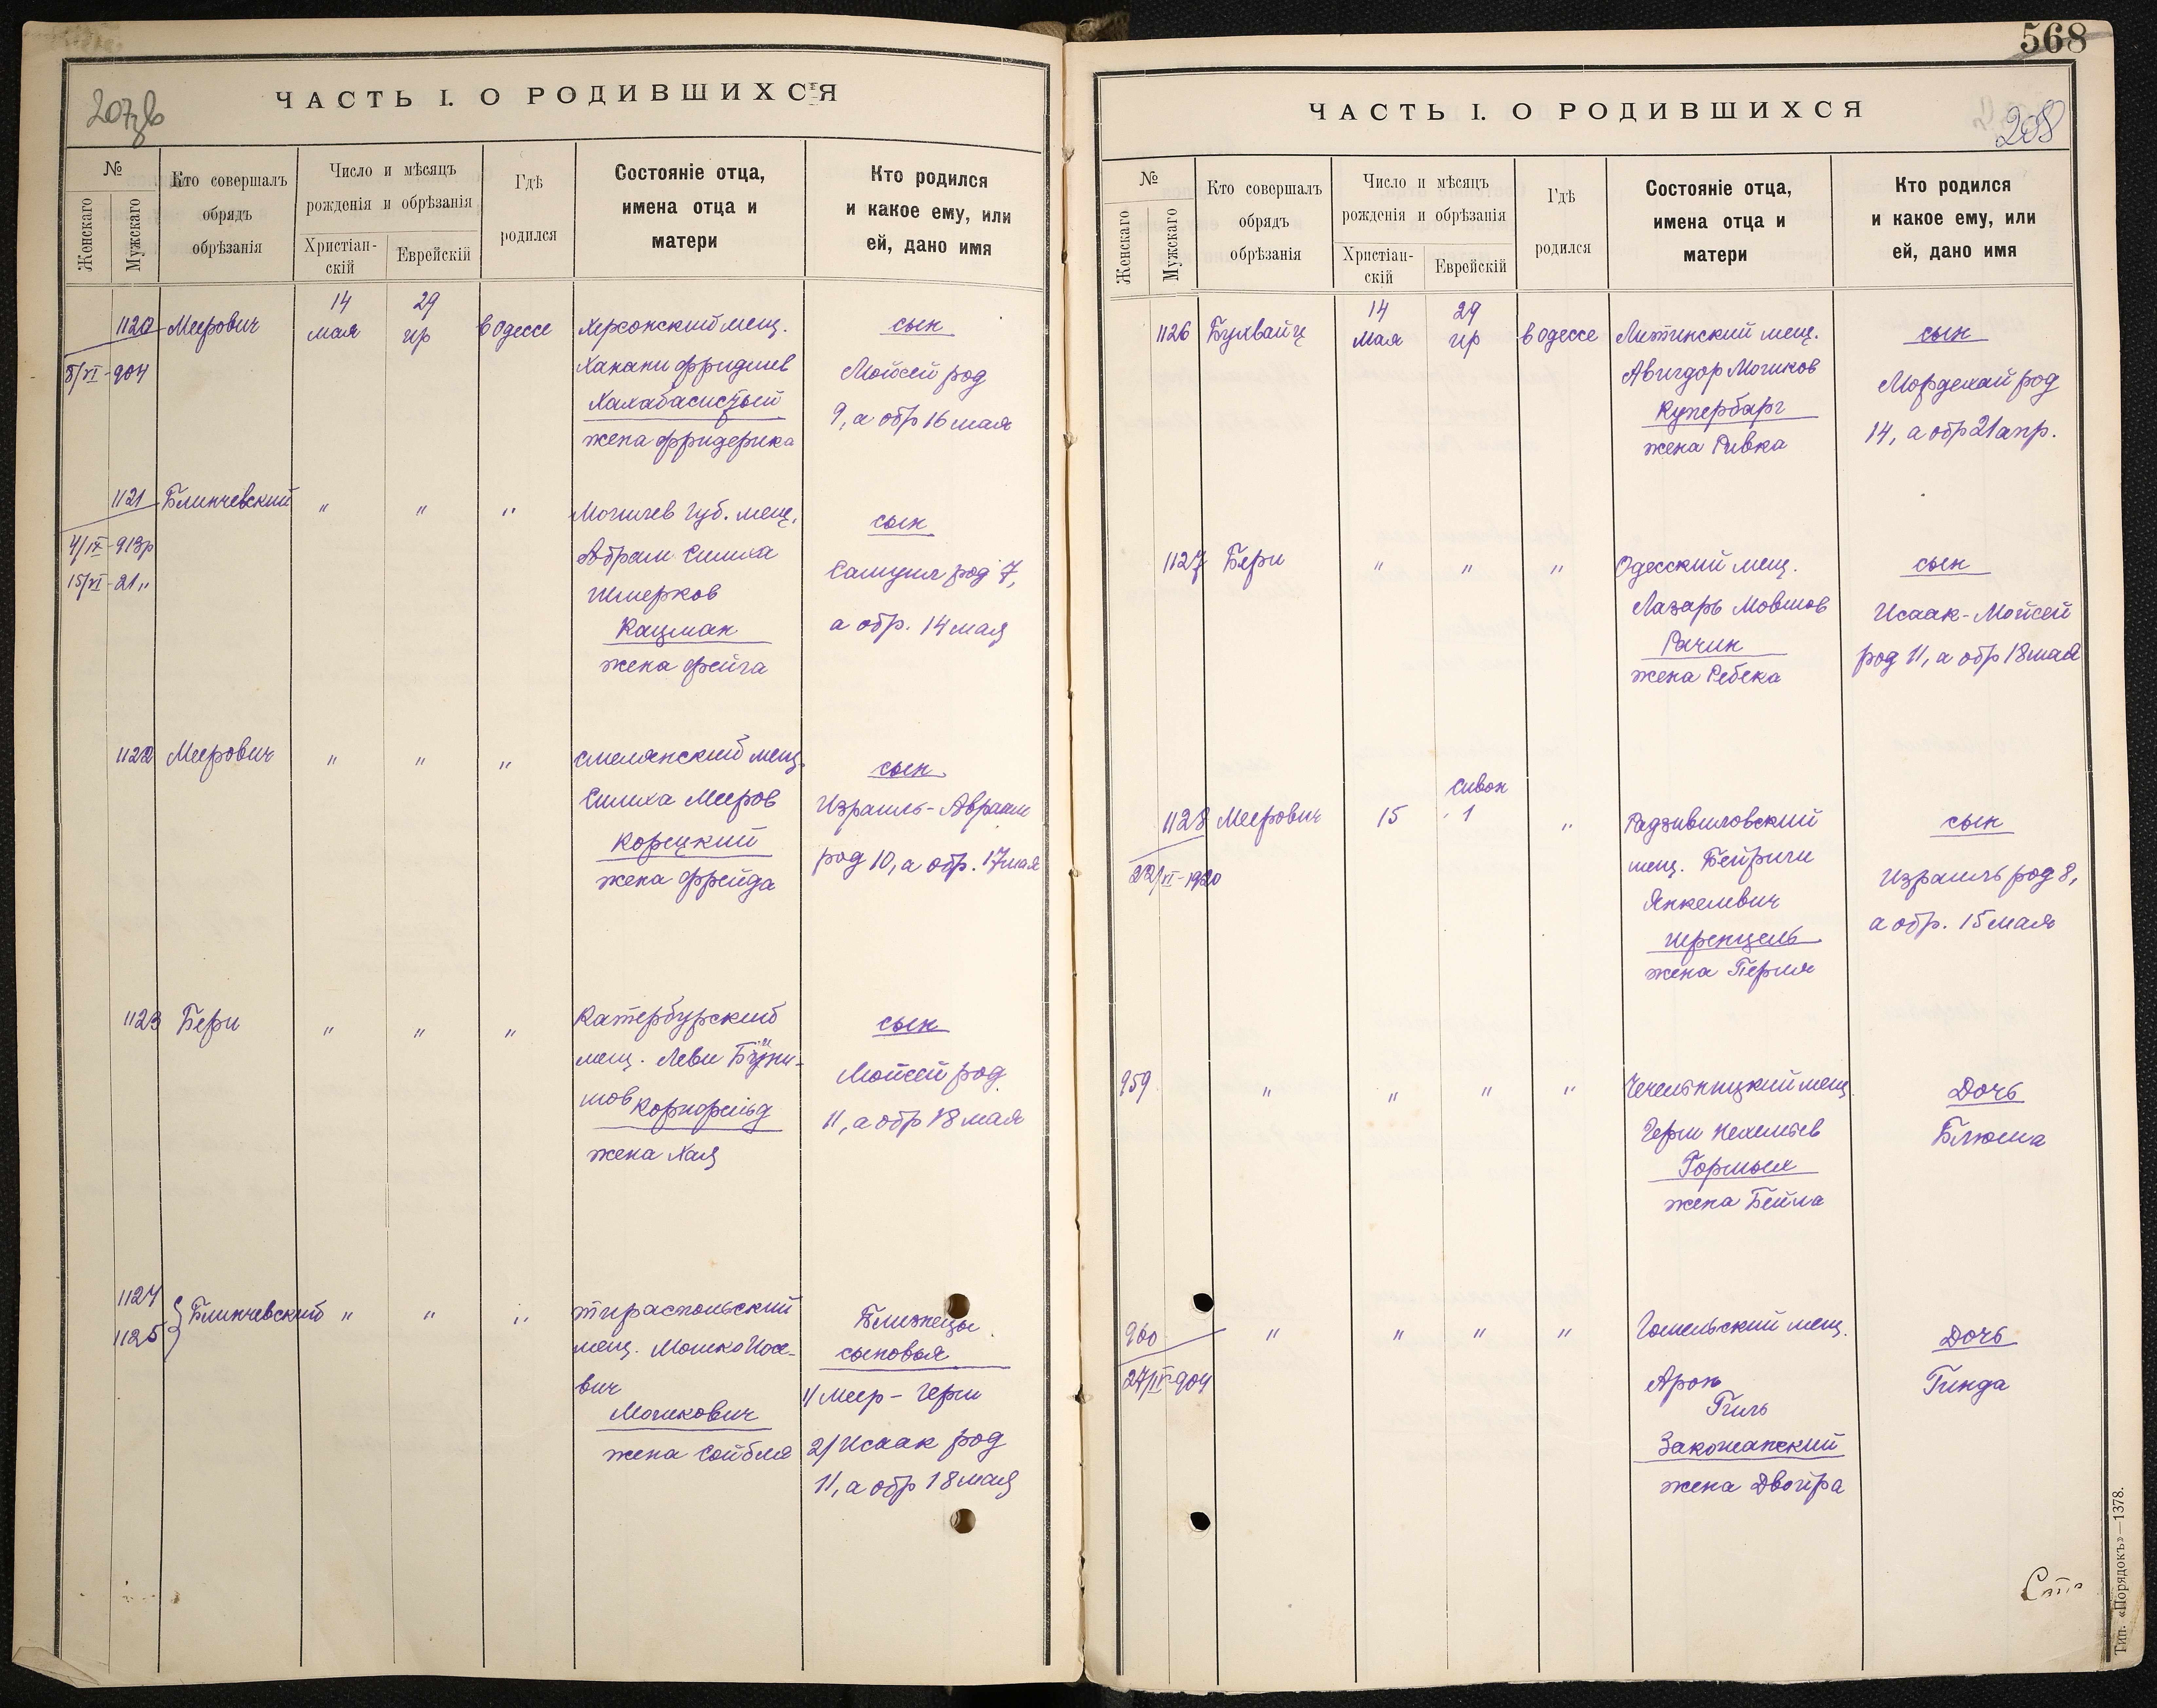 ЧАСТЬ I. О РОДИВШИХСЯ
№
Женскаго
Мужскаго
Кто совершалъ
обрядъ
обрѣзанія
Число и мѣсяцъ
рожденія и обрѣзанія
Христіан-
скій
Еврейскій
Гдѣ
родился
Состояніе отца,
имена отца и
матери
Кто родился
и какое ему, или
ей, дано имя
1120 Меерович 14 мая 29 ир в Одессе
8/XI-904
Херсонский мещ.
Ханани Фридлев
жена Фридерика
сын
Мойсей род
9, а обр 16 мая
1121 Блинчевский " " "
4/IX-913р
15/XI-21"
Могилев губ. мещ.
Абрам Симха
Шмерков
Кацман
жена Фейга
сын
Самуил род 7,
а обр. 14 мая
1122 Меерович " " "
Смелянский мещ.
Симха Мееров
Корецкий
жена Фрейда
сын
Израиль-Авраам
род 10, а обр. 17 мая
1123 Бери " " "
Катербурский
мещ. Леви
шов Корнфельд
жена Хая
сын
Мойсей род
11, а обр 18 мая
1124
1125 Блинчевский " " "
Тираспольский
мещ. Мошко Иосе-
вич
Мошкович
жена Сойбля
Близнецы
сыновья
1/ Меер - Герш
2/ Исаак род
11, а обр 18 мая
568
ЧАСТЬ I. О РОДИВШИХСЯ
208
№
Женскаго
Мужскаго
Кто совершалъ
обрядъ
обрѣзанія
Число и мѣсяцъ
рожденія и обрѣзанія
Христіан-
скій
Еврейскій
Гдѣ
родился
Состояніе отца,
имена отца и
матери
Кто родился
и какое ему, или
ей, дано имя
1126 Бухвайц 14 мая 29 ир в Одессе
Литинский мещ.
Авигдор Мошков
Купербарг
жена Ривка
сын
Мордехай род
14, а обр 21 апр.
1127 Бери " " "
Одесский мещ.
Лазарь Мовшов
Рачик
жена Ребека
сын
Исаак-Мойсей
род 11, а обр 18 мая
1128 Меерович 15 Сивон 1 "
22/XI-1920
Радзивиловский
мещ. Бейриш
Янкелевич
Шренцель
жена Перля
сын
Израиль род 8,
а обр. 15 мая
959 " " " "
Чечельницкий мещ.
Герш Нехемьев
жена Бейла
Дочь
Блюма
960 " " " "
27/IV-904
Гомельский мещ.
Арон
Гиль
жена Двойра
Дочь
Гинда
Тип. «Порядокъ»—1378.